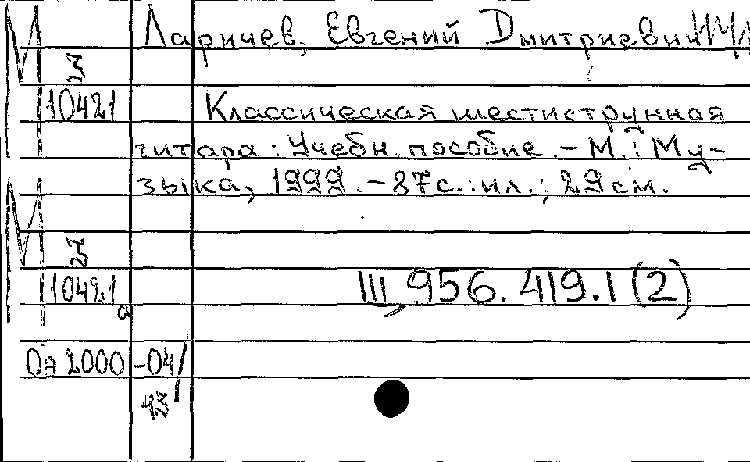 Ларичев, Евгений Дмитриевич
М
27
10421
Классическая шестиструнная
гитара: Учебн. пособие. - М.: Му-
зыка, 1999. - 87 с.: ил.; 29 см.
М
27
10421
а
III, 956.419.1 (2)
2000-04/